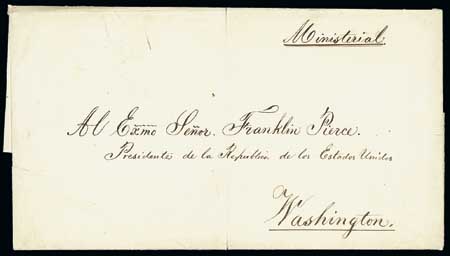 Ministerial.
Al Exmo Señor. Franklin Pierce.
Presidente de la Republica de los Estados Unidos
Washington.